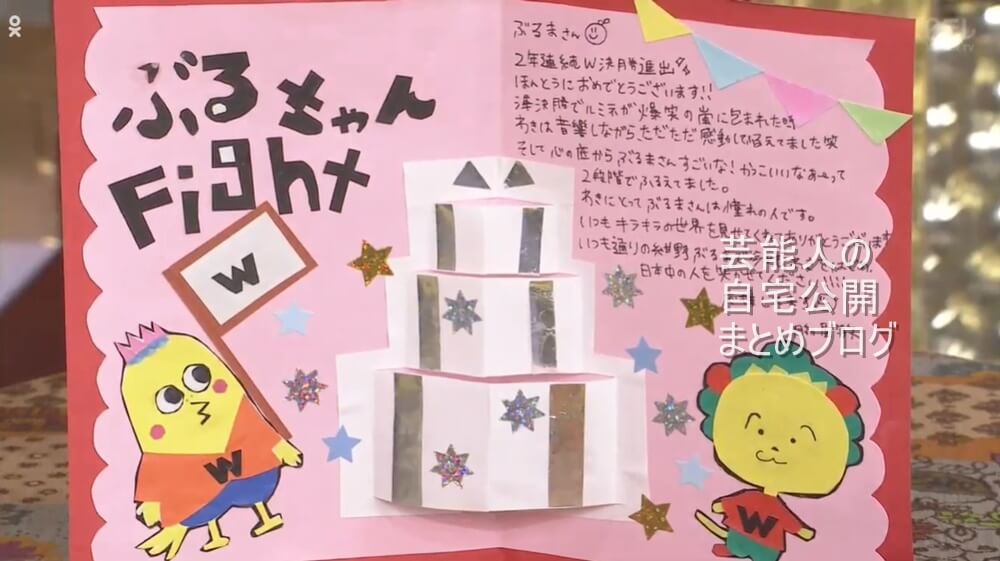 ぶるちゃん
Fight
W
W
W
ぶるまさん
2年連続W決勝進出
ほんとうにおめでとうございます!!
準決勝でルミネが爆笑の嵐に包まれた時
わきは音響しながらただただ感動して震えてました笑
そして心の底からぶるまさんすごいな!かっこいいなあーって
2段階でふるえてました。
わきにとってぶるまさんは憧れの人です。
いつもキラキラの世界を見せてくれてありがとうござい
いつも通りの紺野ぶる
日本中の人を
芸能人の
自宅公開
まとめブログ